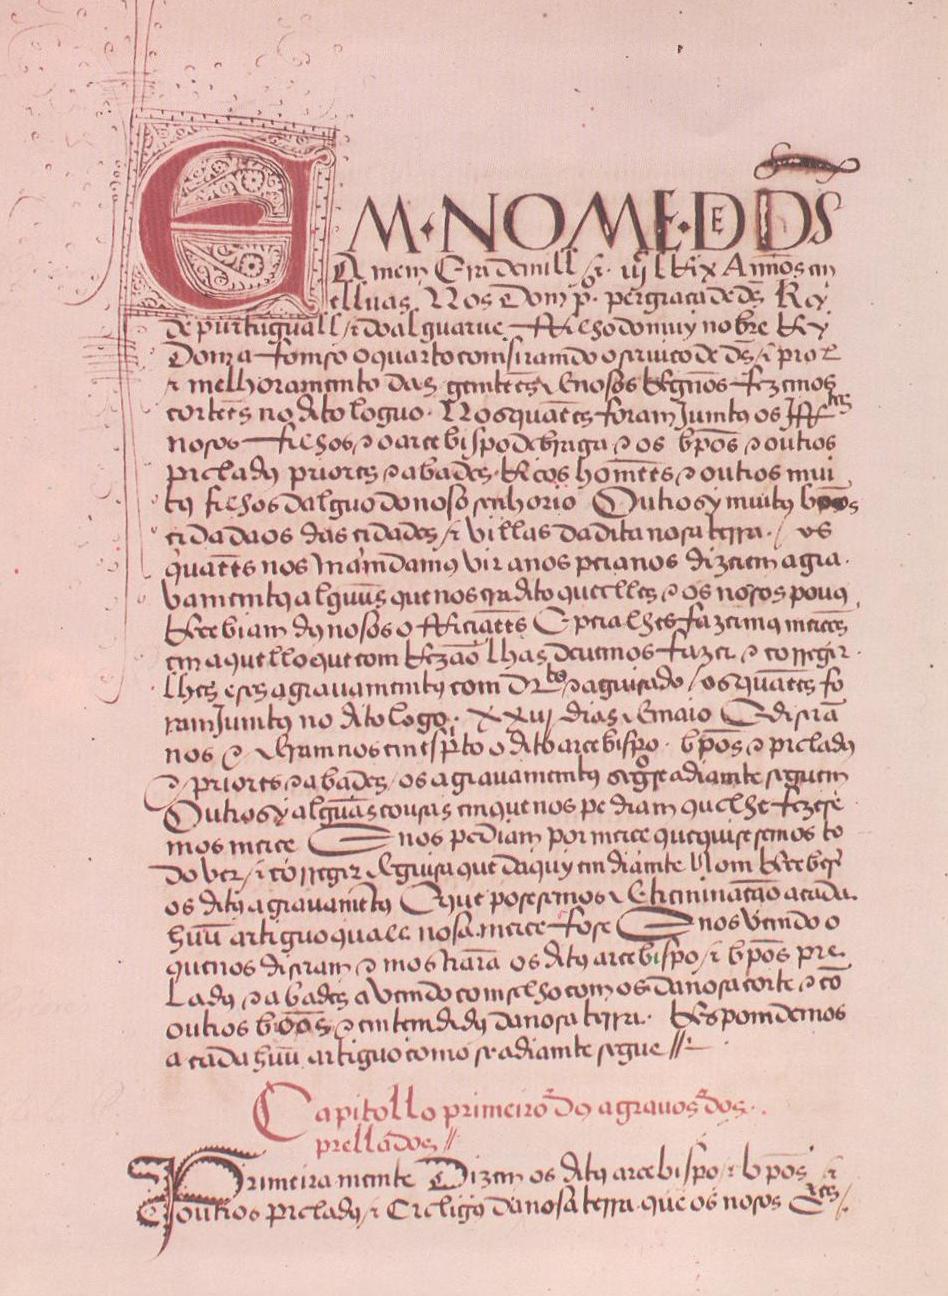 EM·NOME·DE DS
Amem Era de mill
elluas. Nos Dom p.º per graça de ds Rey
de purtuguall e do alguarue filho do muy nobre Rey
Dom afomso o quarto comsiramdo o seruiço de ds e prol
e melhoramento das gentes e nosos Regnos fezemos
cortes no dito loguo. Nos quaees foram Juntos os Ifftes
nosos filhos e o arcebispo de braga e os bpos e outros
prelados priores e abades. Ricos homees e outros mui
tos filhos dalguo do noso senhorio Outrosy muitos boos
cidadaos das cidades e villas da dita nosa terra. os
quaees nos mandamos vir a nos pera nos dizerem agra
uamentos alguus que nos era dito que elles e os nosos pouos
Recebiam dos nosos officiaees E pera lhes fazermos merces
em aquello que com Rezão lhas deuemos fazer e correger
lhes eses agrauamentos com drto e aguisado os quaees fo
ram Juntos no dito logo. xxuj dias de maio E diserã
nos e deram nos em espto o dito arcebispo. bpos e prelados
e priores e abades os agrauamentos segũ se adiamte seguem
Outrosy alguãs cousas em que nos pediam que lhe fezese
mos merce E nos pediam por merce que quisesemos to
do ver e correger de guisa que daquy em diamte nom Recebesẽ
os ditos agrauamẽtos E que posesemos determinaçaão a cada
huũ artiguo quall nosa merce fose E nos vendo o
que nos diseram e mostrarã os ditos arcebispo e bpos pre
lados e abades avendo comselho com os da nosa corte e cõ
outros boõs e emtemdidos da nosa terra. Respomdemos
a cada huũ artiguo como se adiamte segue //
Capitollo primeiro dos agrauos dos
prellados //
Primeiramente Dizem os ditos arcebispo e bpos e
outros prelados e Creligos da nosa terra que os nosos